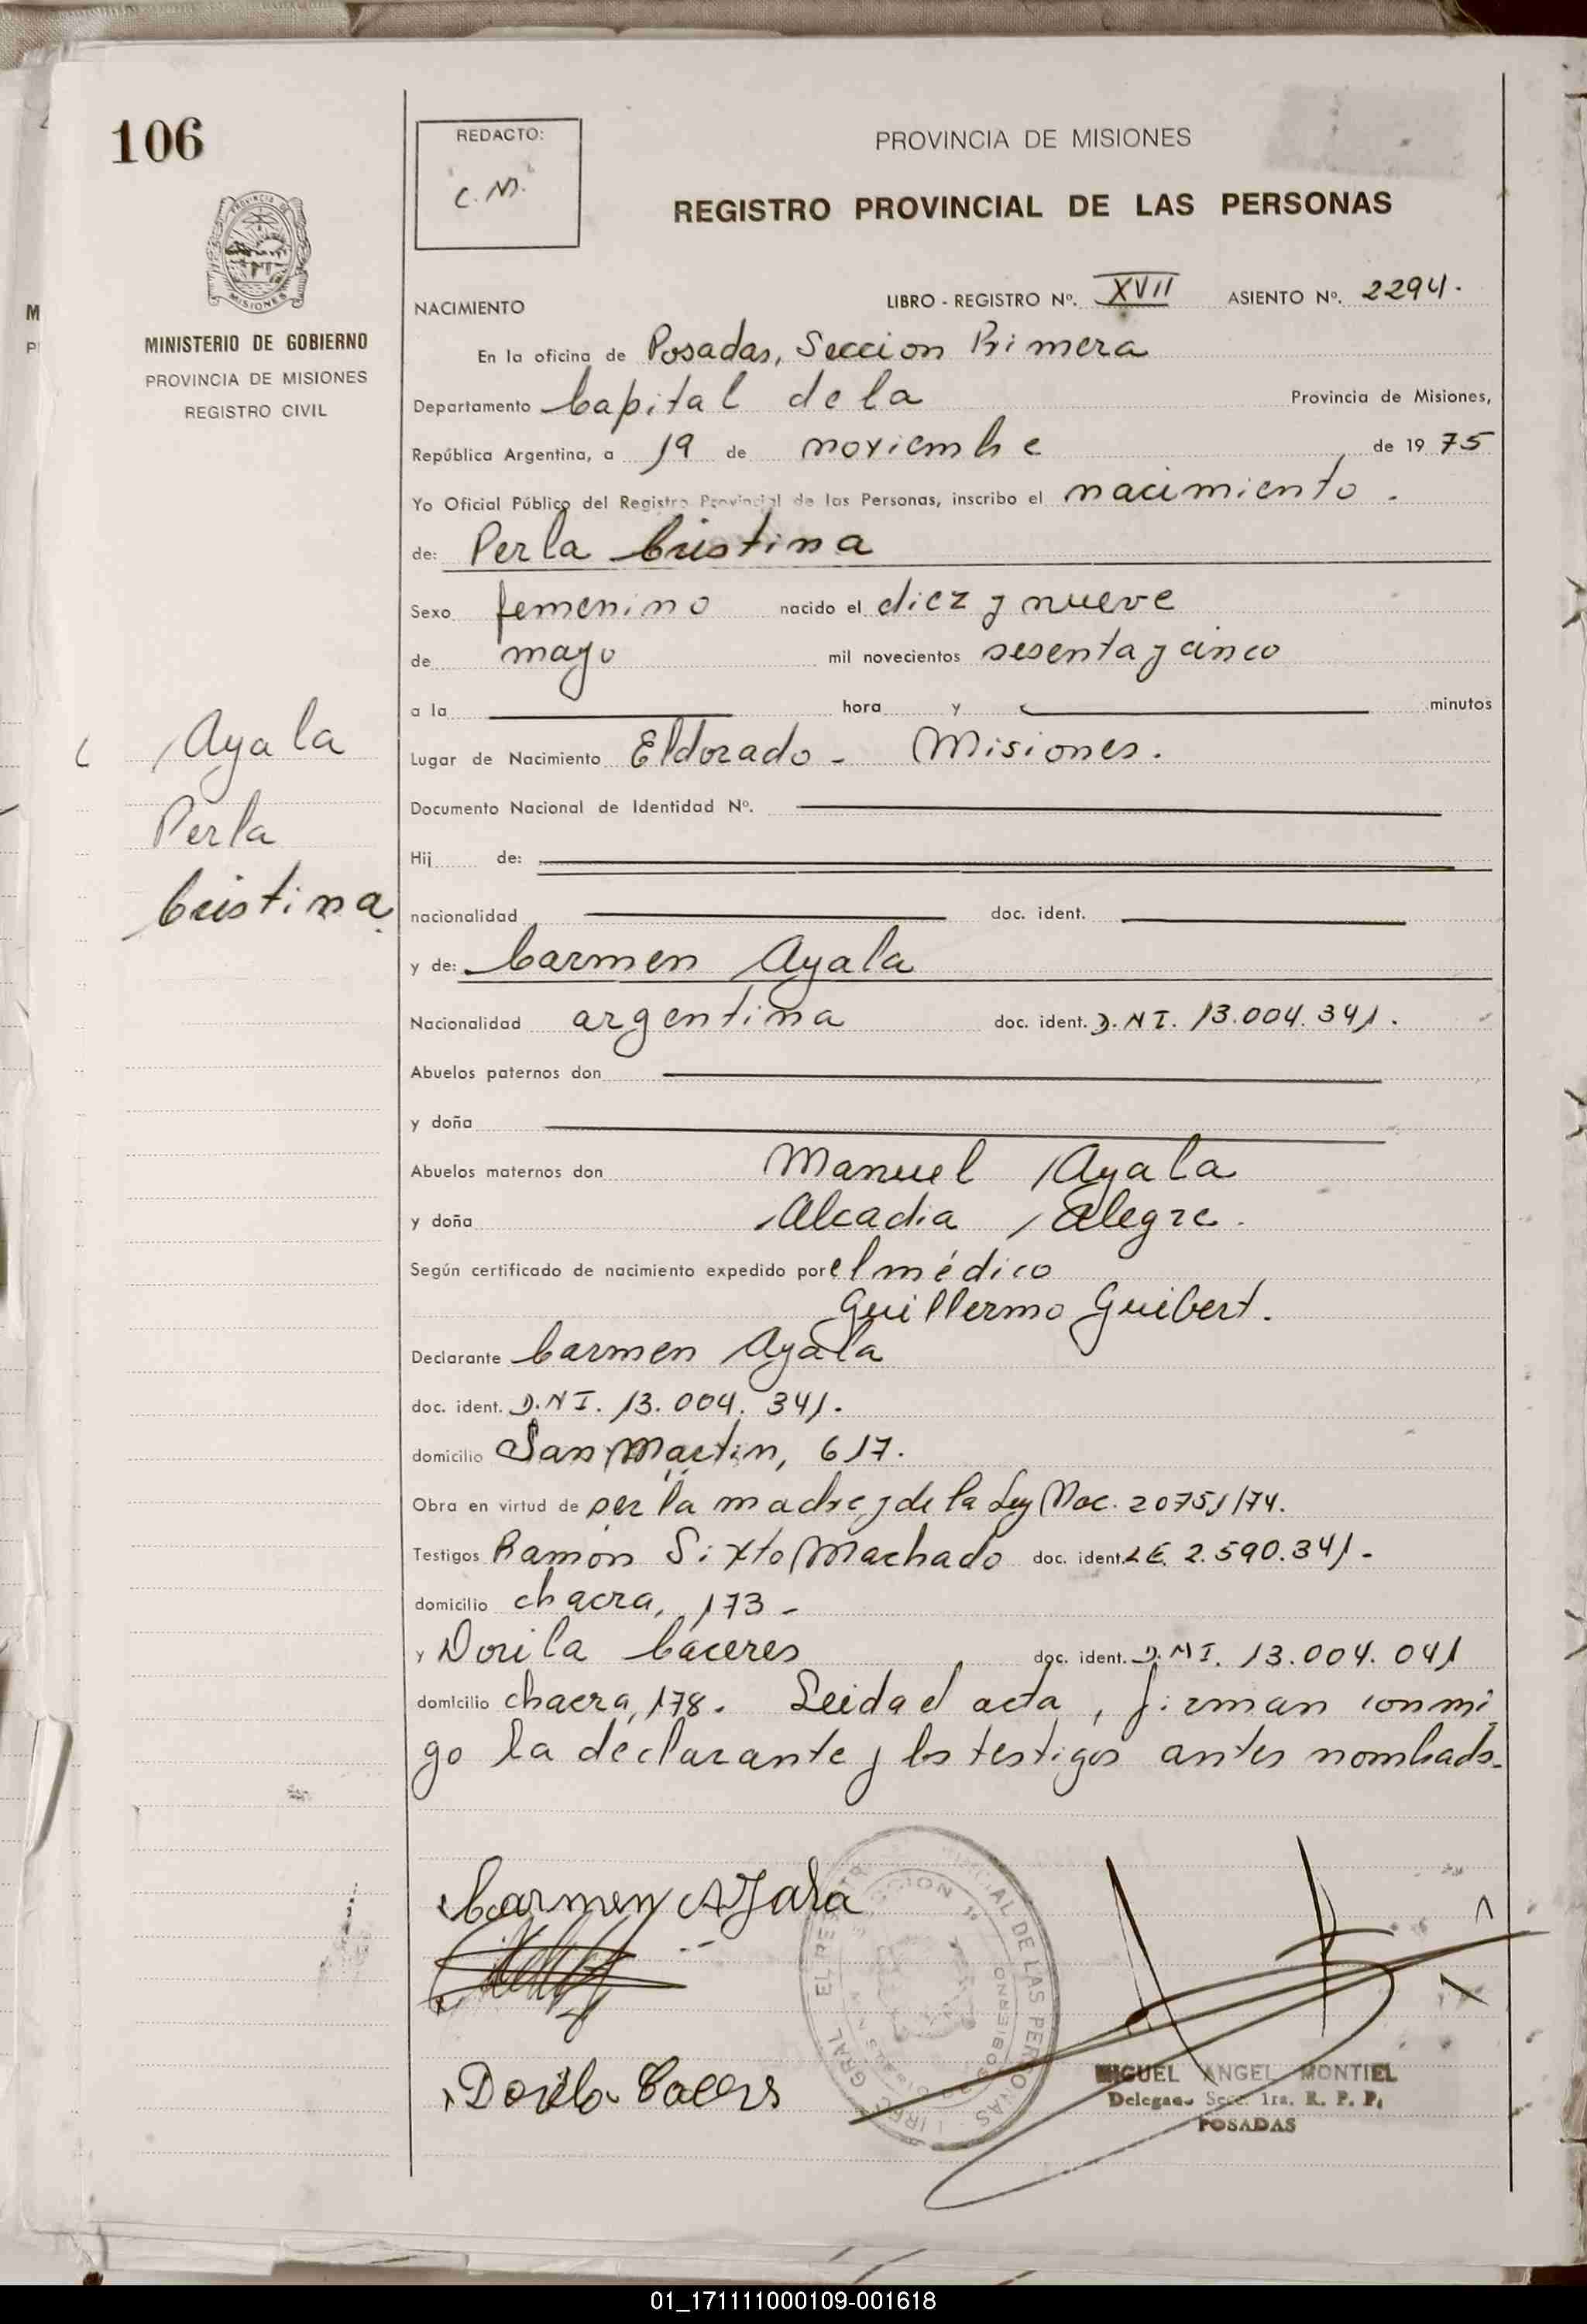 106
REDACTO:
C. M.
PROVINCIA DE MISIONES
REGISTRO PROVINCIAL DE LAS PERSONAS
PROVINCIA DE
MISIONES
MINISTERIO DE GOBIERNO
PROVINCIA DE MISIONES
REGISTRO CIVIL
NACIMIENTO
LIBRO - REGISTRO Nº. XVII ASIENTO Nº. 2294.
En la oficina de Posadas, Seccion Primera
Departamento Capital de la Provincia de Misiones,
República Argentina, a 19 de noviembre de 19 75
Yo Oficial Público del Registro Provincial de las Personas, inscribo el nacimiento.
de: Perla Cristina
Sexo femenino nacido el diez y nueve
de mayo mil novecientos sesenta y cinco
a la hora y minutos
Lugar de Nacimiento Eldorado - Misiones.
Documento Nacional de Identidad Nº.
Hij de:
nacionalidad doc. ident.
y de: Carmen Ayala
Nacionalidad argentina doc. ident. D.N I. 13.004.341.
Abuelos paternos don
y doña
Abuelos maternos don Manuel Ayala
y doña Alcadia Alegre.
Según certificado de nacimiento expedido por el médico
Guillermo Guibert.
Declarante Carmen Ayala
doc. ident. D.N I. 13.004.341.
domicilio San Martin, 617.
Obra en virtud de ser la madre y de la Ley Nac. 20751/74.
Testigos Ramón Sixto Machado doc. ident. L E. 2.590.341-
domicilio chacra, 173-
y Dorila Cáceres doc. ident. D.N I. 13.004.041
domicilio chacra, 178. Leida el acta, firman conmi
go la declarante y los testigos antes nombrados-
Ayala
Perla
Cristina
Carmen Ayala
Dorila Caceres
MIGUEL ANGEL MONTIEL
Delegado Secc. 1ra. R. P. P.
POSADAS
01_171111000109-001618